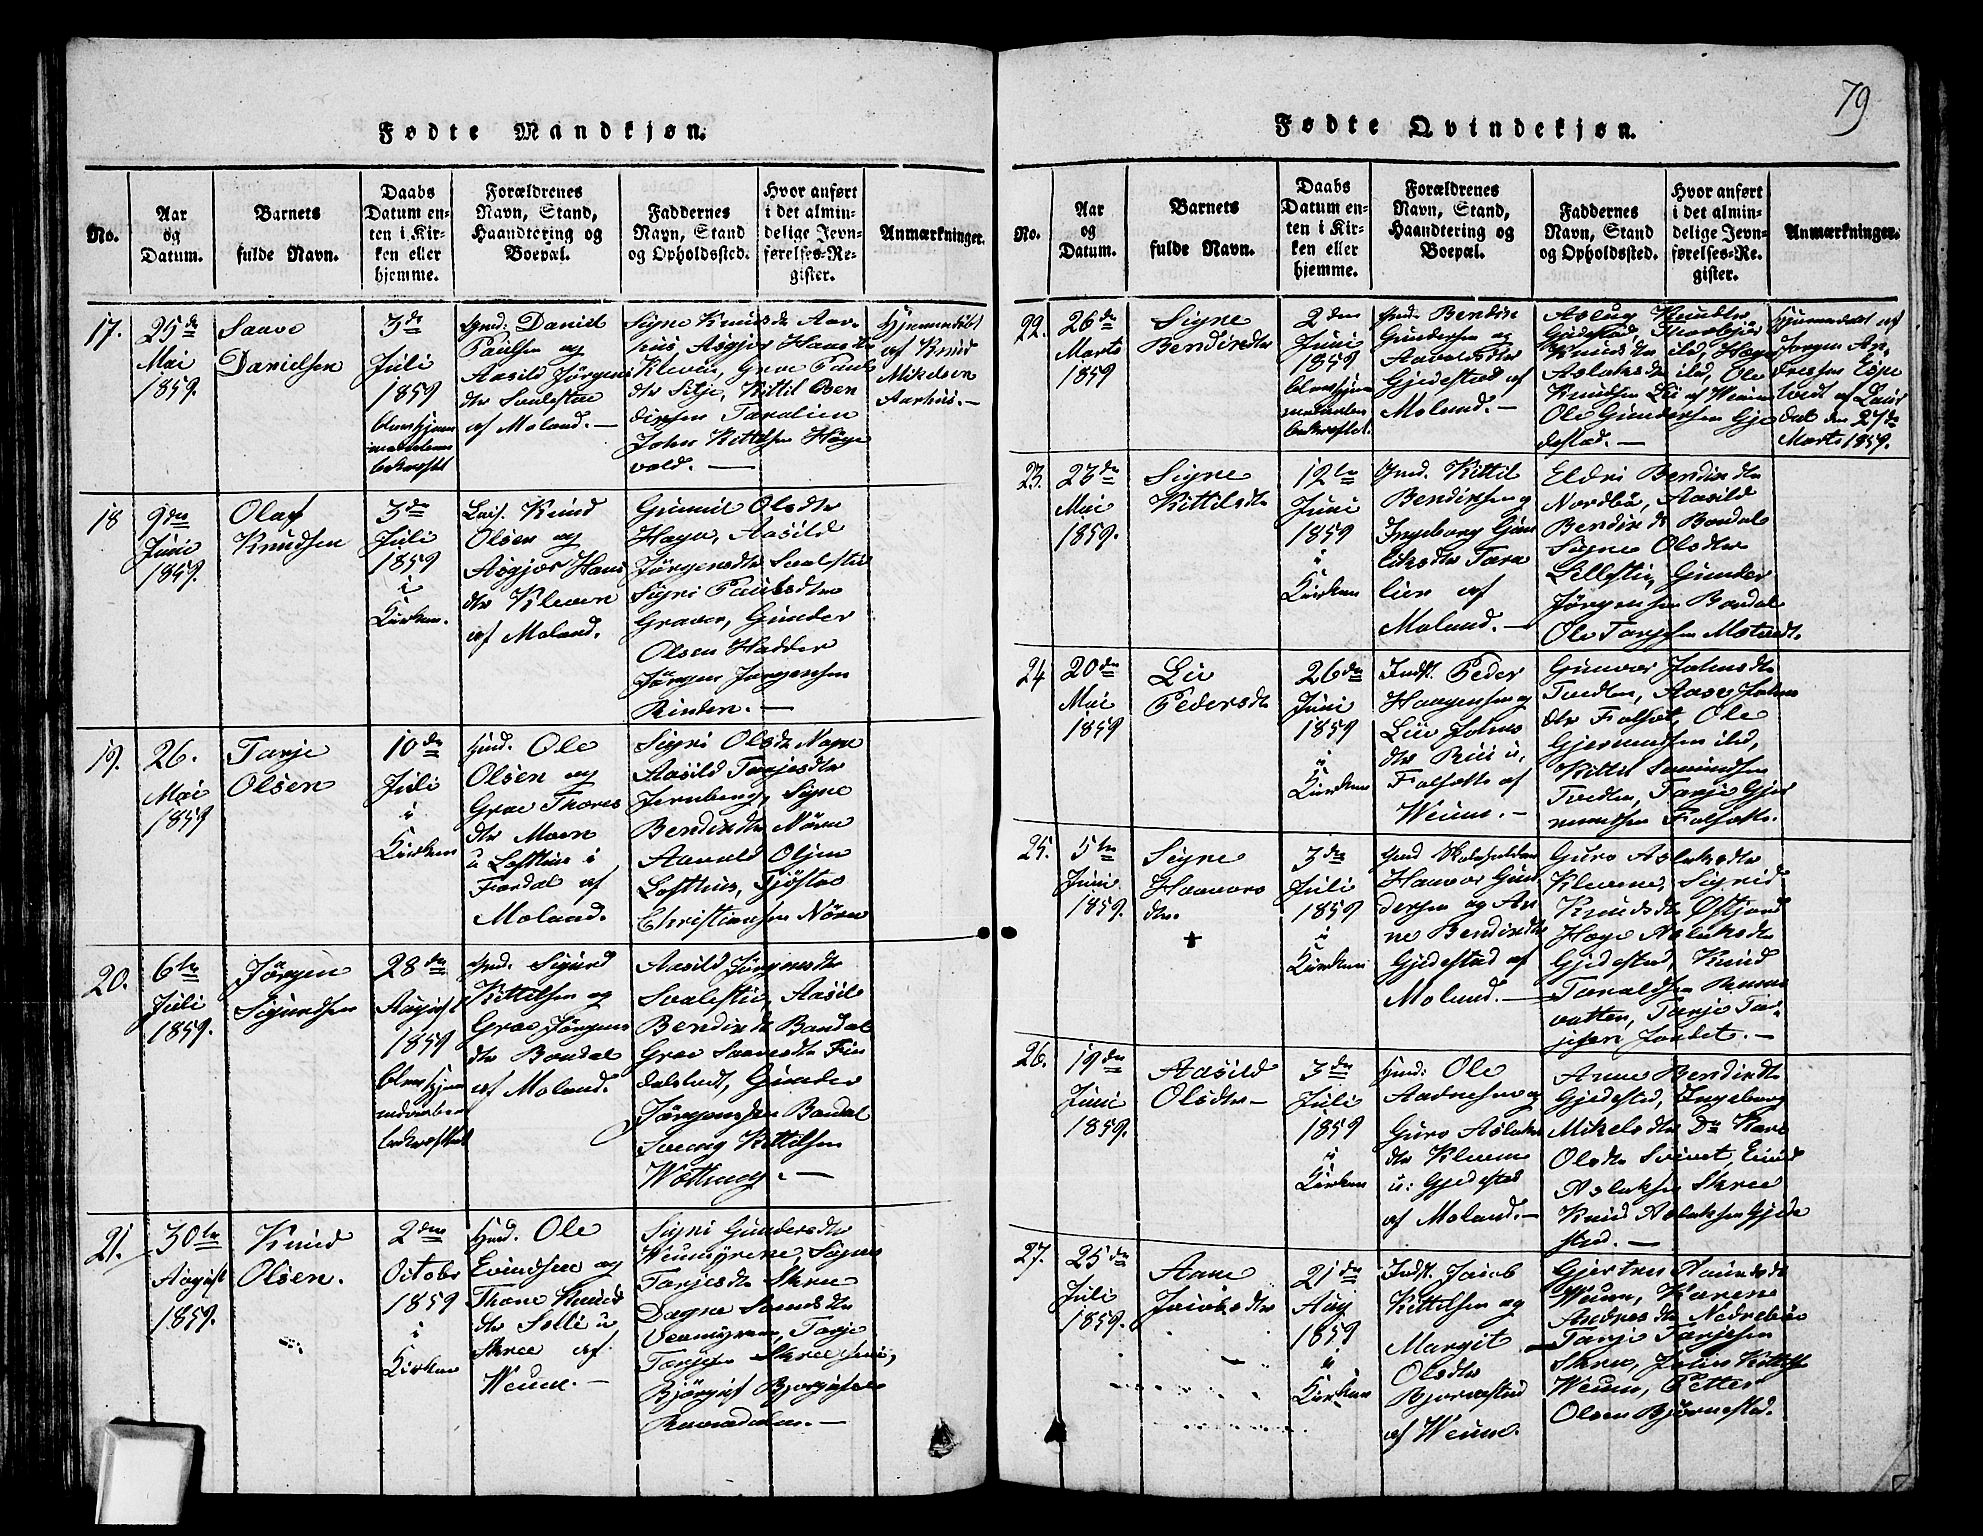 79
Fødte Mandkjøn.
No.
Aar
og
Datum.
Barnets
fulde Navn.
Daabs
Datum en-
ten i Kir-
ken eller
hjemme.
Forældrenes
Navn, Stand,
Haandtering og
Boepæl.
Faddernes
Navn, Stand
og Opholdssted.
Hvor anført
i det almin-
delige Jevn-
førelses-Re-
gister.
Anmærkninger.
17.
25de
Mai
1859.
Saave
Danielsen
3de
Juli
1859
blev hjem
medaaben
bekræftet
Gmd. Daniel
Paulsen og
Aasild Jørgens
dtr Svalestøe
af Moland. —
Signe Knudsdtr Aar-
hus, Asgjør Haasdtr
Kleven, Groe Pauls
dtr Silje, Kittil Ben
dixsen Taralien
John Kittilsen Høge
vold. —
Hjemmedøbt
af Knud
Mikelsen
Aarhus. —
18
9de
Juni
1859.
Olaf
Knudsen
3de
Juli
1859
i
Kirken.
Leif. Knud
Olsen og
Asgjør Hans
dtr Kleven
af Moland.
Gunnil Olsdtr
Haga, Aasild
Jørgensdtr Svalestøe
Signi Paulsdtr
Graver, Gunder
Olsen Hadder
Jørgen Jørgensen
Rinden. —
19.
26.
Mai
1859
Tarje
Olsen
10de
Juli
i
Kirken
Hmd. Ole
Olsen og
Groe Thores
dtr Moen
u Lofthus i
Fardal af
Moland.
Signi Olsdtr Nape
Aasild Tarjesdtr
Jernberg, Signe
Bendixdtr Nørve
Aavold Olsen
Lofthus, Tjøstov
Christiansen Nørve
20.
6te
Juli
1859.
Jørgen
Sigurdsen
28de
August
1859
blev hjem
medaaben
bekræftet
Gmd. Sigurd
Kittilsen og
Groe Jørgens
dtr Bondal
af Moland.
Aasild Jørgensdtr
Svalestøe, Aasild
Bendixdtr Bandal
Groe Saavesdtr Fin
dalstad, Gunder
Jørgensen Bandal
Sveinig Kittilsen
Wøllung. —
21.
30te
August
1859.
Knud
Olsen.
2den
Octobr
1859
i
Kirken
Hmd. Ole
Evindsen og
Thone Knuds
dtr Selli u
Skree af
Weum. —
Signi Gundersdtr
Weumyrene, Signe
Tarjesdtr Skree
Dagne Saundsdtr
Veumyrene, Tarje
Tarjesen Skree
Bjørguf Bjørgufsen
Ravndalen. —
Fødte Qvindekjøn.
No.
Aar
og
Datum.
Barnets
fulde Navn.
Daabs
Datum en-
ten i Kir-
ken eller
hjemme.
Forældrenes
Navn, Stand,
Haandtering og
Boepæl.
Faddernes
Navn, Stand
og Opholdssted.
Hvor anført
i det almin-
delige Jevn-
førelses-Re-
gister.
Anmærkninger.
22.
26de
Marts
1859
Signe
Bendixdtr
2den
Juni
1859
blev hjem
medaaben
bekræftet.
Gmd. Bendix
Gundersen og
Aavoldsdtr
Gjedestad af
Moland. —
Aslaug Knudsdtr
Gjedestad, Thorbjør
Knudsdtr ibd, Hæge
Aslaksdtr ibd, Ole
Knudsen Lii af Weum
Ole Gundersen Gje
destad. —
Hjemmedøbt af
Jørgen An-
dresen Espe
tvedt af Laur
dal den 27de
Marts 1859.
23.
23de
Mai
1859.
Signe
Kittilsdtr
12te
Juni
1859
i
Kirken
Gmd. Kittil
Bendixsen og
Ingeborg Gun
leiksdtr Tara
lien af
Moland. —
Eldri Bendixdtr
Nordbø, Aasild
Bendixdtr Bandal
Signe Olsdtr
Lillestøe, Gunder
Jørgensen Bandal
Ole Tarjesen Moltvedt.
24
20de
Mai
1859
Liv
Pedersdtr
26de
Juni
1859
i
Kirken
Indst. Peder
Haagensen og
Liv Johns
dtr Rui u.
Falfotte af
Weum. —
Gunvor Johnsdtr
Tvedten, Aase Johns
dtr Falfot, Ole
Gjermundsen ibd,
Kittil Samundsen
Tvedten, Tarje Gjer
mundsen Falfotte.
25.
5te
Juni
1859.
Signe
Haavors
dtr.
+
3de
Juli
1859
i
Kirken
Gmd Skoleholder
Haavor Gun
dersen og An
ne Bendixdtr
Gjedestad af
Moland. —
Guro Aslaksdtr
Klevene, Sigrid
Knudsdtr Østjord
Hæge Aslaksdtr
Gjedestad, Knud
Taraldsen
vatten, Tarje Tar-
jesen Jordet. —
26.
19de
Juni
1859.
Aasild
Olsdtr —
3de
Juli
1859
i
Kirken
Hmd. Ole
Aadnesen og
Guro Aslaks
dtr Klevene
u: Gjedestad
af Moland. —
Anne Bendixdtr
Gjedestad, Ingeborg
Mikelsdtr Do Kare
Olsdtr Svinet, Evind
Aslaksen Skree
Knud Aslaksen Gjede
stad. —
27.
25de
Juli
1859.
Anne
Jacobsdtr
21de
Aug
1859
i
Kirken
Indst. Jacob
Kittilsen og
Margit
Olsdtr
Bjørnestad
af Weum.
Gjertru Aanundsdtr
Weum, Karen
Andresdtr Nedrebøe
Tarje Tarjesen
Skree, Johns Kittilsen
Weum, Petter
Olsen Bjørnestad.